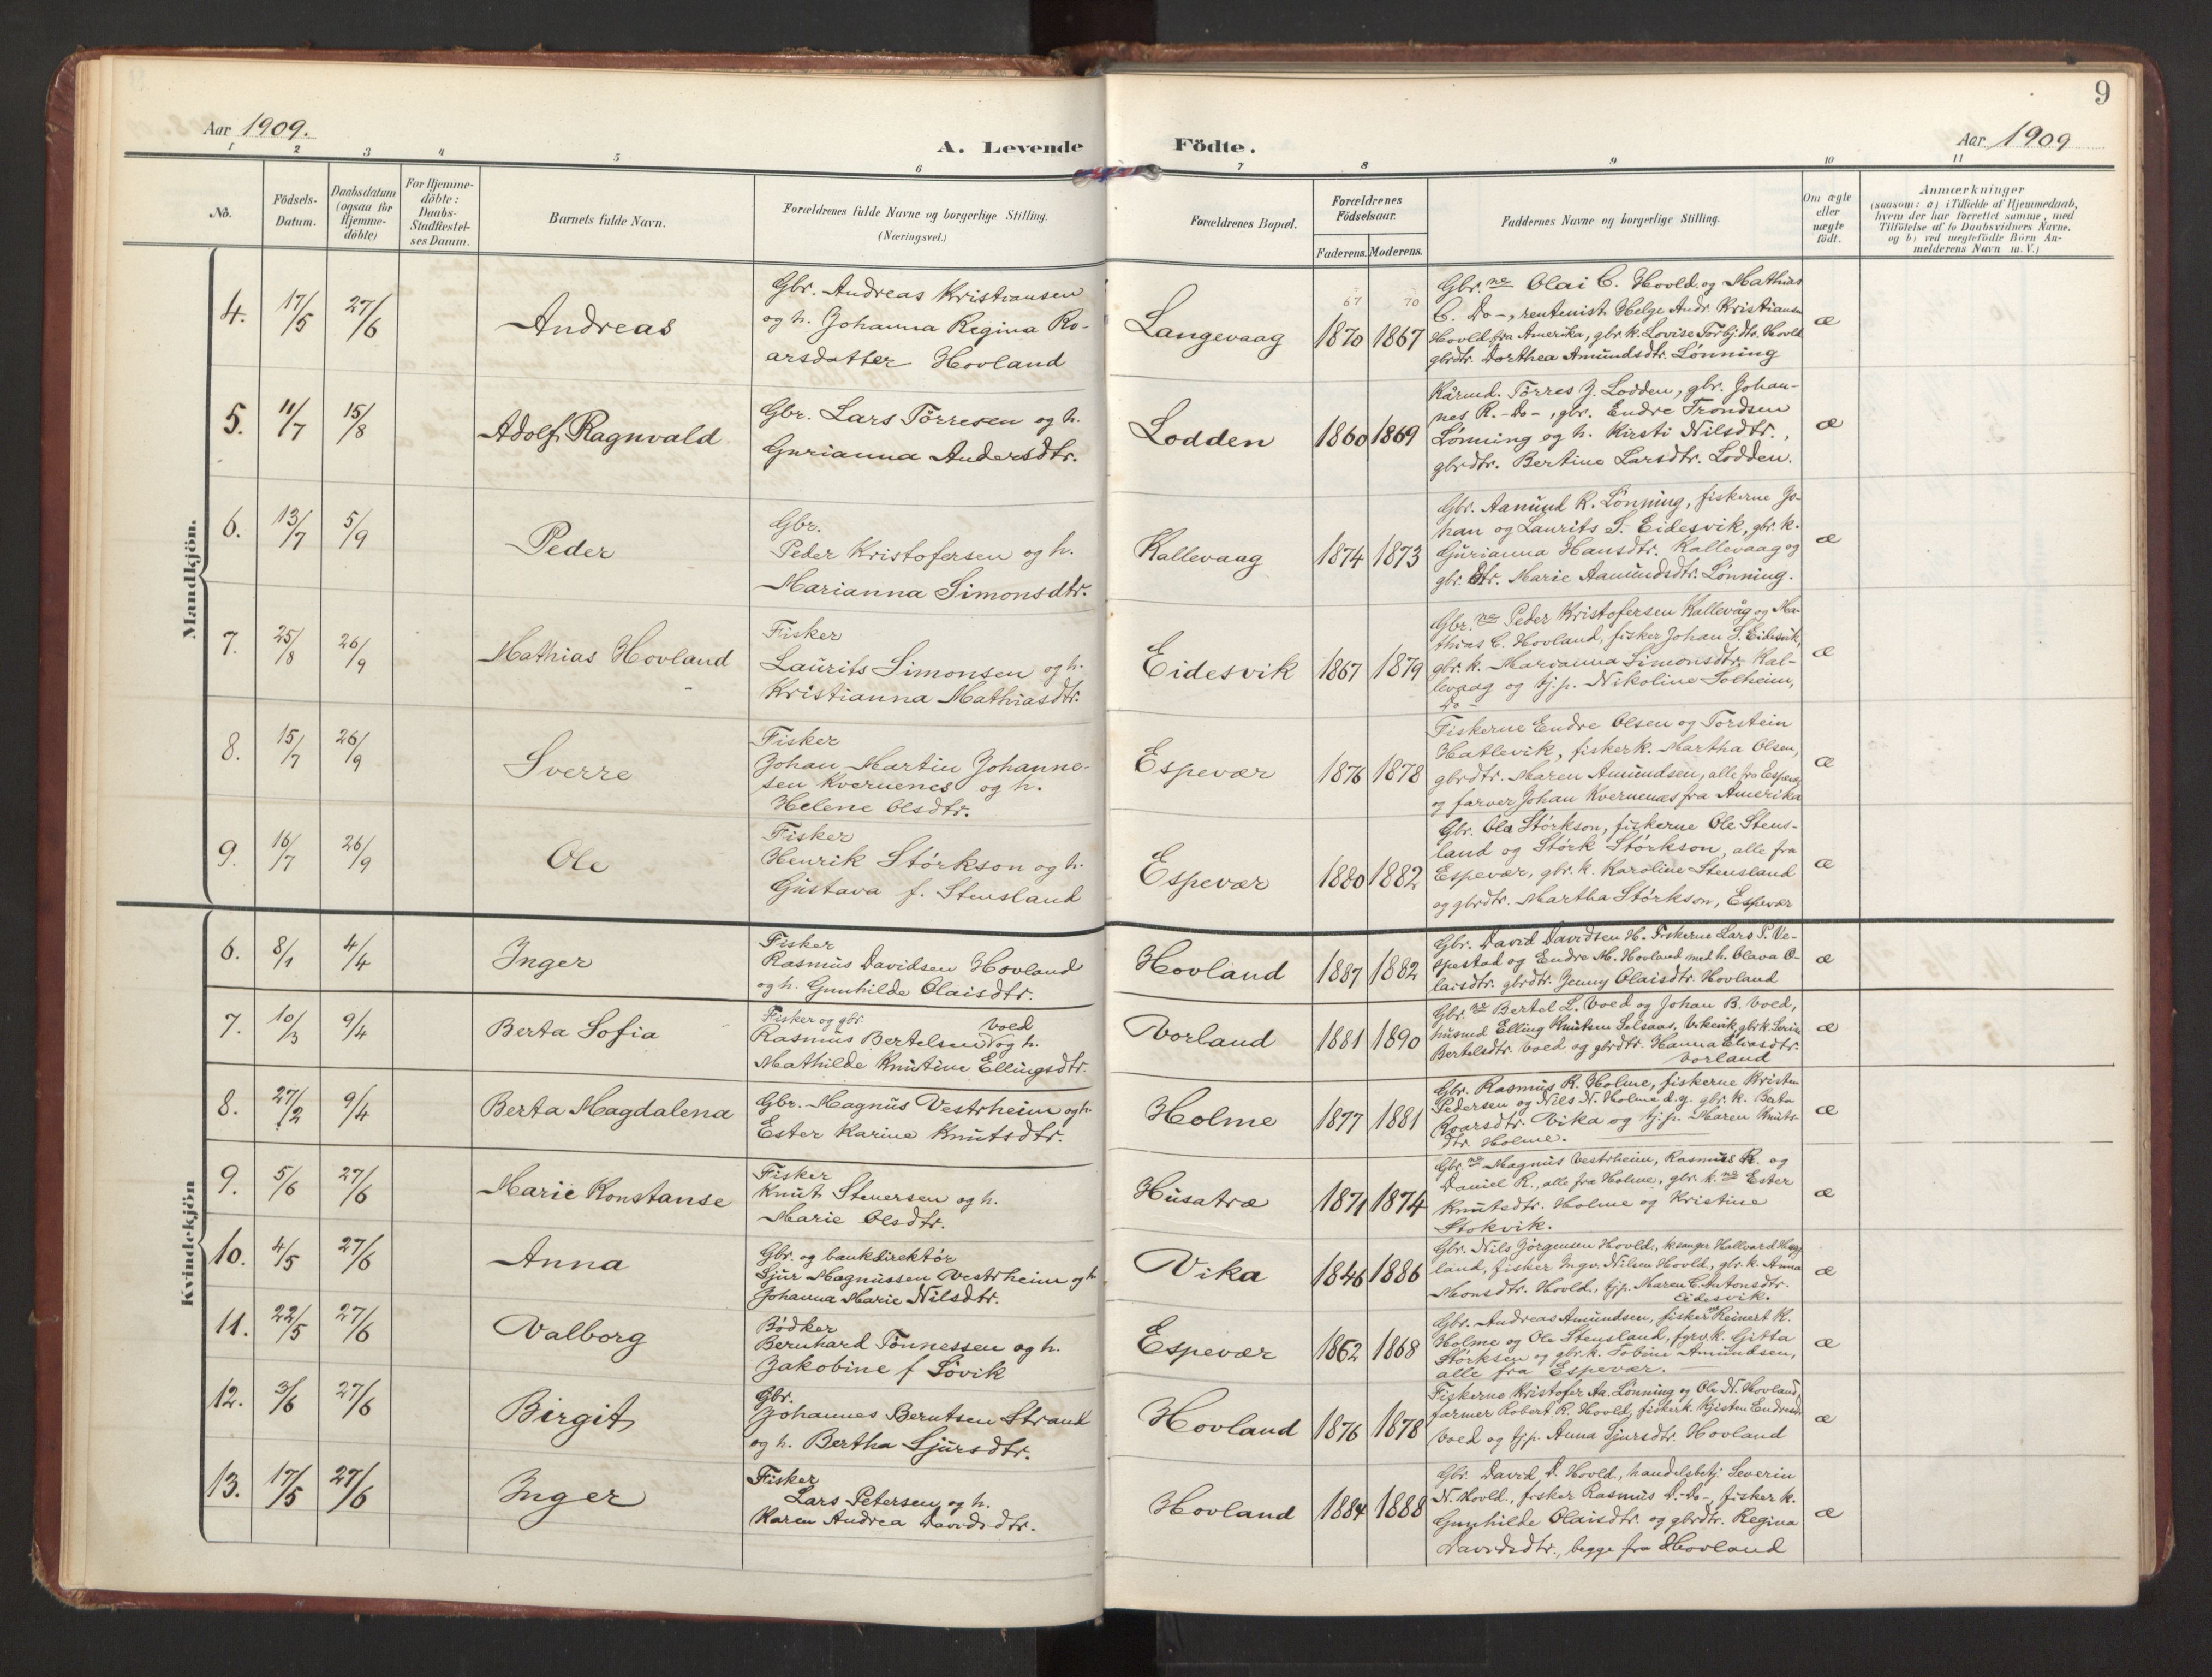 9
Aar 1909.
A. Levende Födte.
Aar 1909
1 2 3 4 5 6 7 8 9 10 11
No.
Födsels-Datum.
Daabsdatum (ogsaa for Hjemme-döbte)
For Hjemme-döbte: Daabs-Stadfæstel-ses Datum.
Barnets fulde Navn.
Forældrenes fulde Navne og borgerlige Stilling.
(Næringsvei.)
Forældrenes Bopæl.
Forældrenes Födselsaar.
Faderens. Moderens.
Faddernes Navne og borgerlige Stilling.
Om ægte eller uægte födt.
Anmærkninger
(saasom: a) i Tilfælde af Hjemmedaab,
hvem der har forrettet samme, med
Tilföielse af to Daabsvidners Navne,
og b) ved uægtefödte Börn An-
melderens Navn m. V.)
Mandkjön.
4. 17/5 27/6 Andreas
Gbr. Andreas Kristiansen
og h. Johanna Regina Ro-
arsdatter Hovland
Langevaag
67 70
1870 1867
Gbr.ne Olai C. Hovld. og Mathias
C. Do-, rentenist Helge Andr. Kristiansen
Hovld fra Amerika, gbr. k. Lovise Torbjdtr. Hovld
gbrdtr. Dorthea Amundsdtr. Lønning
æ
5. 11/7 15/8 Adolf Ragnvald
Gbr. Lars Tørresen og h.
Gurianna Andersdtr.
Lodden 1860 1869
Kårmd. Tørres J. Lodden, gbr. Johan-
nes R. -Do-, gbr. Endre Trondsen
Lønning og h. Kirsti Nilsdtr.,
gbrdtr. Bertine Larsdtr. Lodden.
æ
6. 13/7 5/9 Peder
Gbr.
Peder Kristofersen og h.
Marianna Simonsdtr.
Kallevaag 1874 1873
Gbr. Aamund K. Lønning, fiskerne Jo-
han og Laurits S. Eidesvik, gbr. k.
Gurianna Hansdtr. Kallevaag og
gbr. dtr. Marie Aamundsdtr. Lønning.
æ
7. 25/8 26/9 Mathias Hovland
Fisker
Laurits Simonsen og h.
Kristianna Mathiasdtr.
Eidesvik 1867 1879
Gbr.ne Peder Kristofersen Kallevåg og Ma-
thias C. Hovland, fisker Johan S. Eidesvik,
gbr. k. Marianna Simonsdtr. Kal-
levaag og tj.p. Nikoline Solheim,
Do-
æ
8. 15/7 26/9 Sverre
Fisker
Johan Martin Johanne-
sen Kvernenes og h.
Helene Olsdtr.
Espevær 1876 1878
Fiskerne Endre Olsen og Torstein
Hatlevik, fiskerk. Martha Olsen,
gbrdtr. Maren Amundsen, alle fra Espevær
og farver Johan Kvernenæs fra Amerika
æ
9. 16/7 26/9 Ole
Fisker
Henrik Størkson og h.
Gustava f. Stensland
Espevær 1880 1882
Gbr. Ola Størkson, fiskerne Ole Stens-
land og Størk Størkson, alle fra
Espevær, gbr. k. Karoline Stensland
og gbrdtr. Martha Størkson, Espevær
æ
Kvindekjön
6. 8/1 4/4 Inger
Fisker
Rasmus Davidsen Hovland
og h. Gunhilde Olaisdtr.
Hovland 1887 1882
Gbr. David Davidsen H. Fiskerne Lars P. Ve-
spestad og Endre M. Hovland med h. Olava O-
laisdtr. gbrdtr. Jenny Olaisdtr. Hovland
æ
7. 10/3 9/4 Berta Sofia
Fisker og gbr.
Rasmus Bertelsen Voed og h.
Mathilde Knutine Ellingsdtr.
Vorland 1881 1890
Gbr.ne Bertel L. Voed og Johan B. Voed,
husmd Elling Knutsen Selsaas, Vikevik, gbr. k.
Bertelsdtr. Voed og gbrdtr. Hanna Eliasdtr.
Vorland
æ
8. 27/2 9/4 Berta Magdalena
Gbr. Magnus Vestrheim og h.
Ester Karine Knutsdtr.
Holme 1877 1881
Gbr. Rasmus R. Holme, fiskerne Kristen
Pedersen og Nils N. Holme d.y. gbr. k. Berta
Roarsdtr. Vika og tj.p. Maren Knuts-
dtr. Holme.
æ
9. 5/6 27/6 Marie Konstanse
Fisker
Knut Stenersen og h.
Marie Olsdtr.
Husatræ 1871 1874
Gbr.ne Magnus Vestrheim, Rasmus R. og
Daniel R., alle fra Holme, gbr. k.ne Ester
Knutsdtr. Holme og Kristine
Stokvik.
æ
10. 4/5 27/6 Anna
Gbr. og bankdirektör
Sjur Magnussen Vestrheim og h
Johanna Marie Nilsdtr.
Vika 1846 1886
Gbr. Nils Jørgensen Hovld., k.sanger Hallvard
land, fisker Ingv. Nilsen Hovld, gbr. k. Anna
Monsdtr. Hovld., tj.p. Maren C. Antonsdtr.
Eidesvik.
æ
11. 22/5 27/6 Valborg
Bödker
Bernhard Tönnessen og h.
Jakobine f Søvik
Espevær 1862 1868
Gbr. Andreas Amundsen, fisker Reinert K.
Holme og Ole Stensland, fyrvk. Gitta
Størksen og gbr. k. Tobine Amundsen,
alle fra Espevær.
æ
12. 3/6 27/6 Birgit
Gbr.
Johannes Berntsen Strand
og h. Bertha Sjursdtr.
Hovland 1876 1878
Fiskerne Kristofer Aa. Lönning og Ole N. Hovland,
farmer Robert R. Hovld, fiskerk. Kjisten Endresdtr
Voed og tj.p. Anna Sjursdtr. Hovland
æ
13. 17/5 27/6 Inger
Fisker
Lars Petersen og h.
Karen Andrea Davidsdtr.
Hovland 1884 1888
Gbr. David D. Hovld., handelsbetj. Severin
N. Hovld., fisker Rasmus D.-Do-, fisker k.
Gunhilde Olaisdtr. og gbrdtr. Regina
Davidsdtr., begge fra Hovland
æ